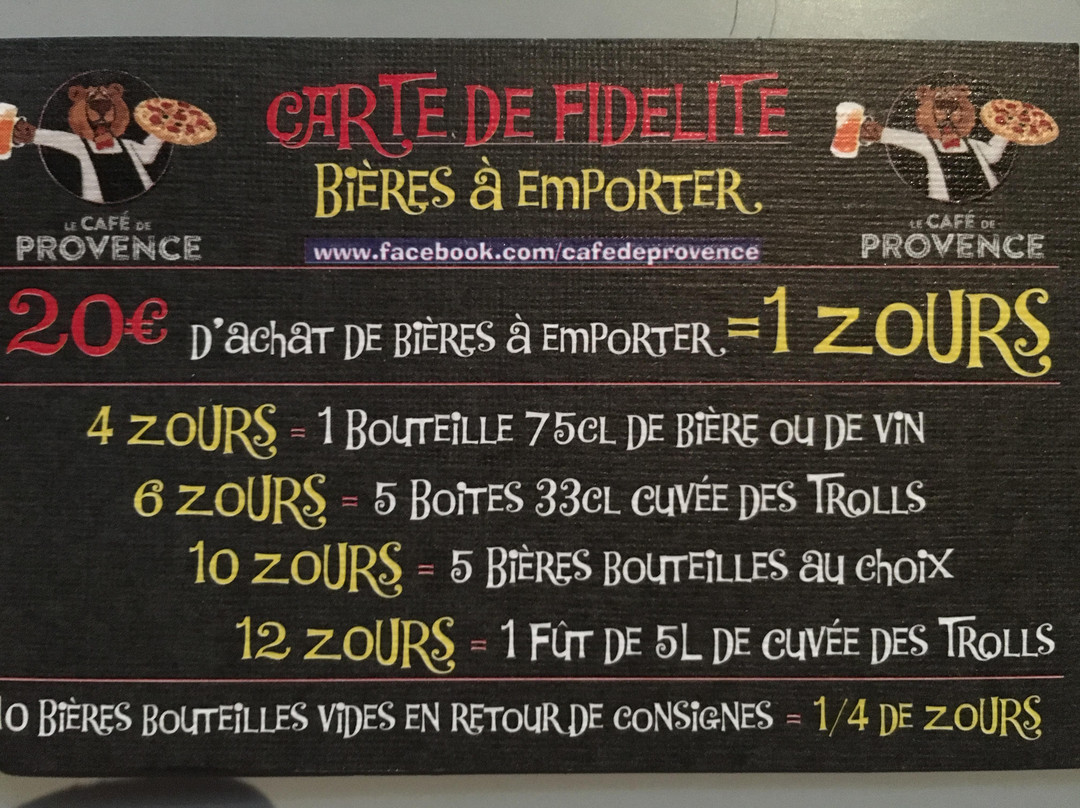 CARTE DE FIDELITE
BIÈRES À EMPORTER
LE CAFÉ DE
PROVENCE
www.facebook.com/cafedeprovence
LE CAFÉ DE
PROVENCE
20€ D'ACHAT DE BIÈRES À EMPORTER =1 ZOURS
4 ZOURS = 1 BOUTEILLE 75CL DE BIÈRE OU DE VIN
6 ZOURS = 5 BOITES 33CL CUVÉE DES TROLLS
10 ZOURS = 5 BIÈRES BOUTEILLES AU CHOIX
12 ZOURS = 1 FÛT DE 5L DE CUVÉE DES TROLLS
10 BIÈRES BOUTEILLES VIDES EN RETOUR DE CONSIGNES = 1/4 DE ZOURS